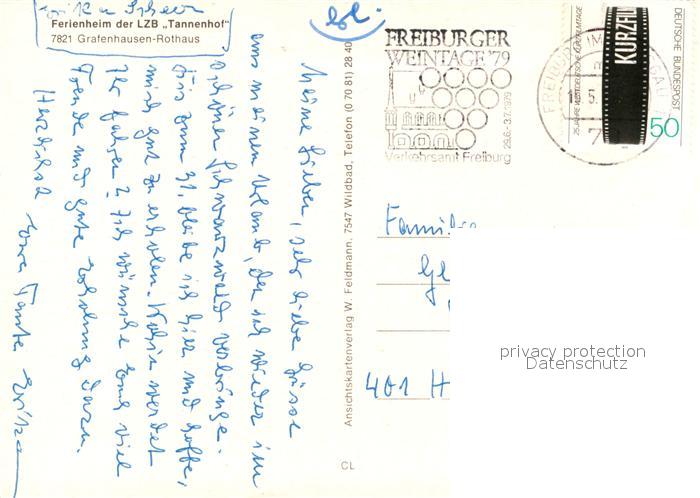 Erika Scheer
Ferienheim der LZB „Tannenhof"
7821 Grafenhausen-Rothaus
Meine Lieben, sehr liebe Grüsse
aus meinem Urlaub, den ich wieder im
schönen Schwarzwald verbringe.
Bis zum 31. bleibe ich hier und hoffe,
mich gut zu erholen. Wohin werdet
Ihr fahren? Ich wünsche Euch viel
Freude und gute Erholung dazu.
Herzlichst
Eure Tante Erika
Ansichtskartenverlag W. Feldmann, 7547 Wildbad, Telefon (0 70 81) 28 40
CL
FREIBURGER
WEINTAGE '79
29.6.-3.7.1979
Verkehrsamt Freiburg
FREIBURG IM
25 JAHRE WESTDEUTSCHE KURZFILMTAGE
KURZFILM
DEUTSCHE BUNDESPOST
50
Familie
Ge
401 H
privacy protection
Datenschutz